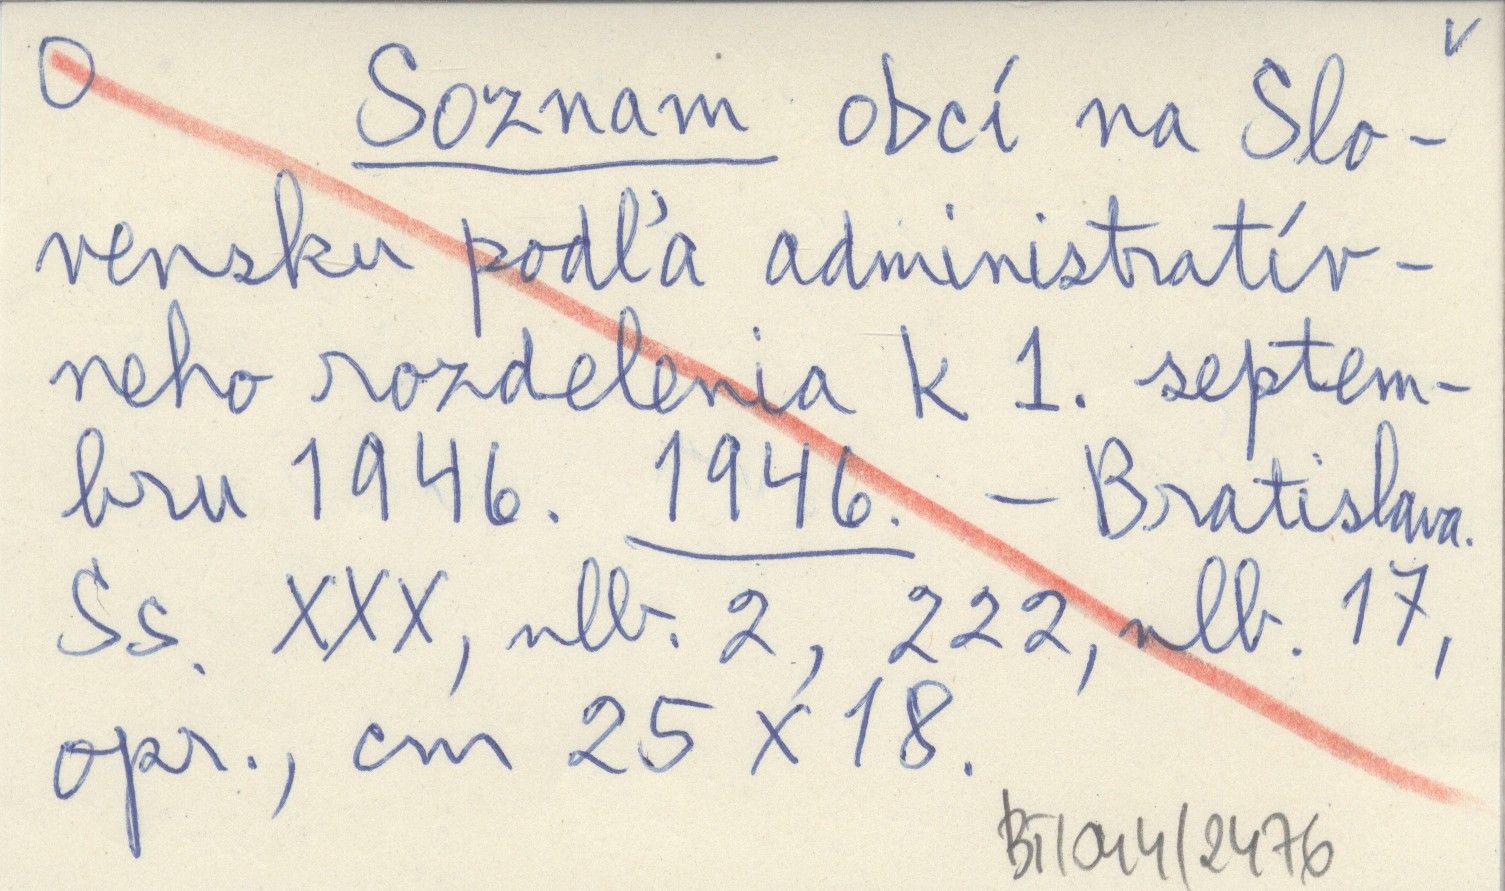 O Soznam obcí na Slo-
vensku podľa administratív-
neho rozdelenia k 1. septem-
bru 1946. 1946. - Bratislava.
Ss. XXX, nlb. 2, 222, nlb. 17,
opr., cm 25 x 18.